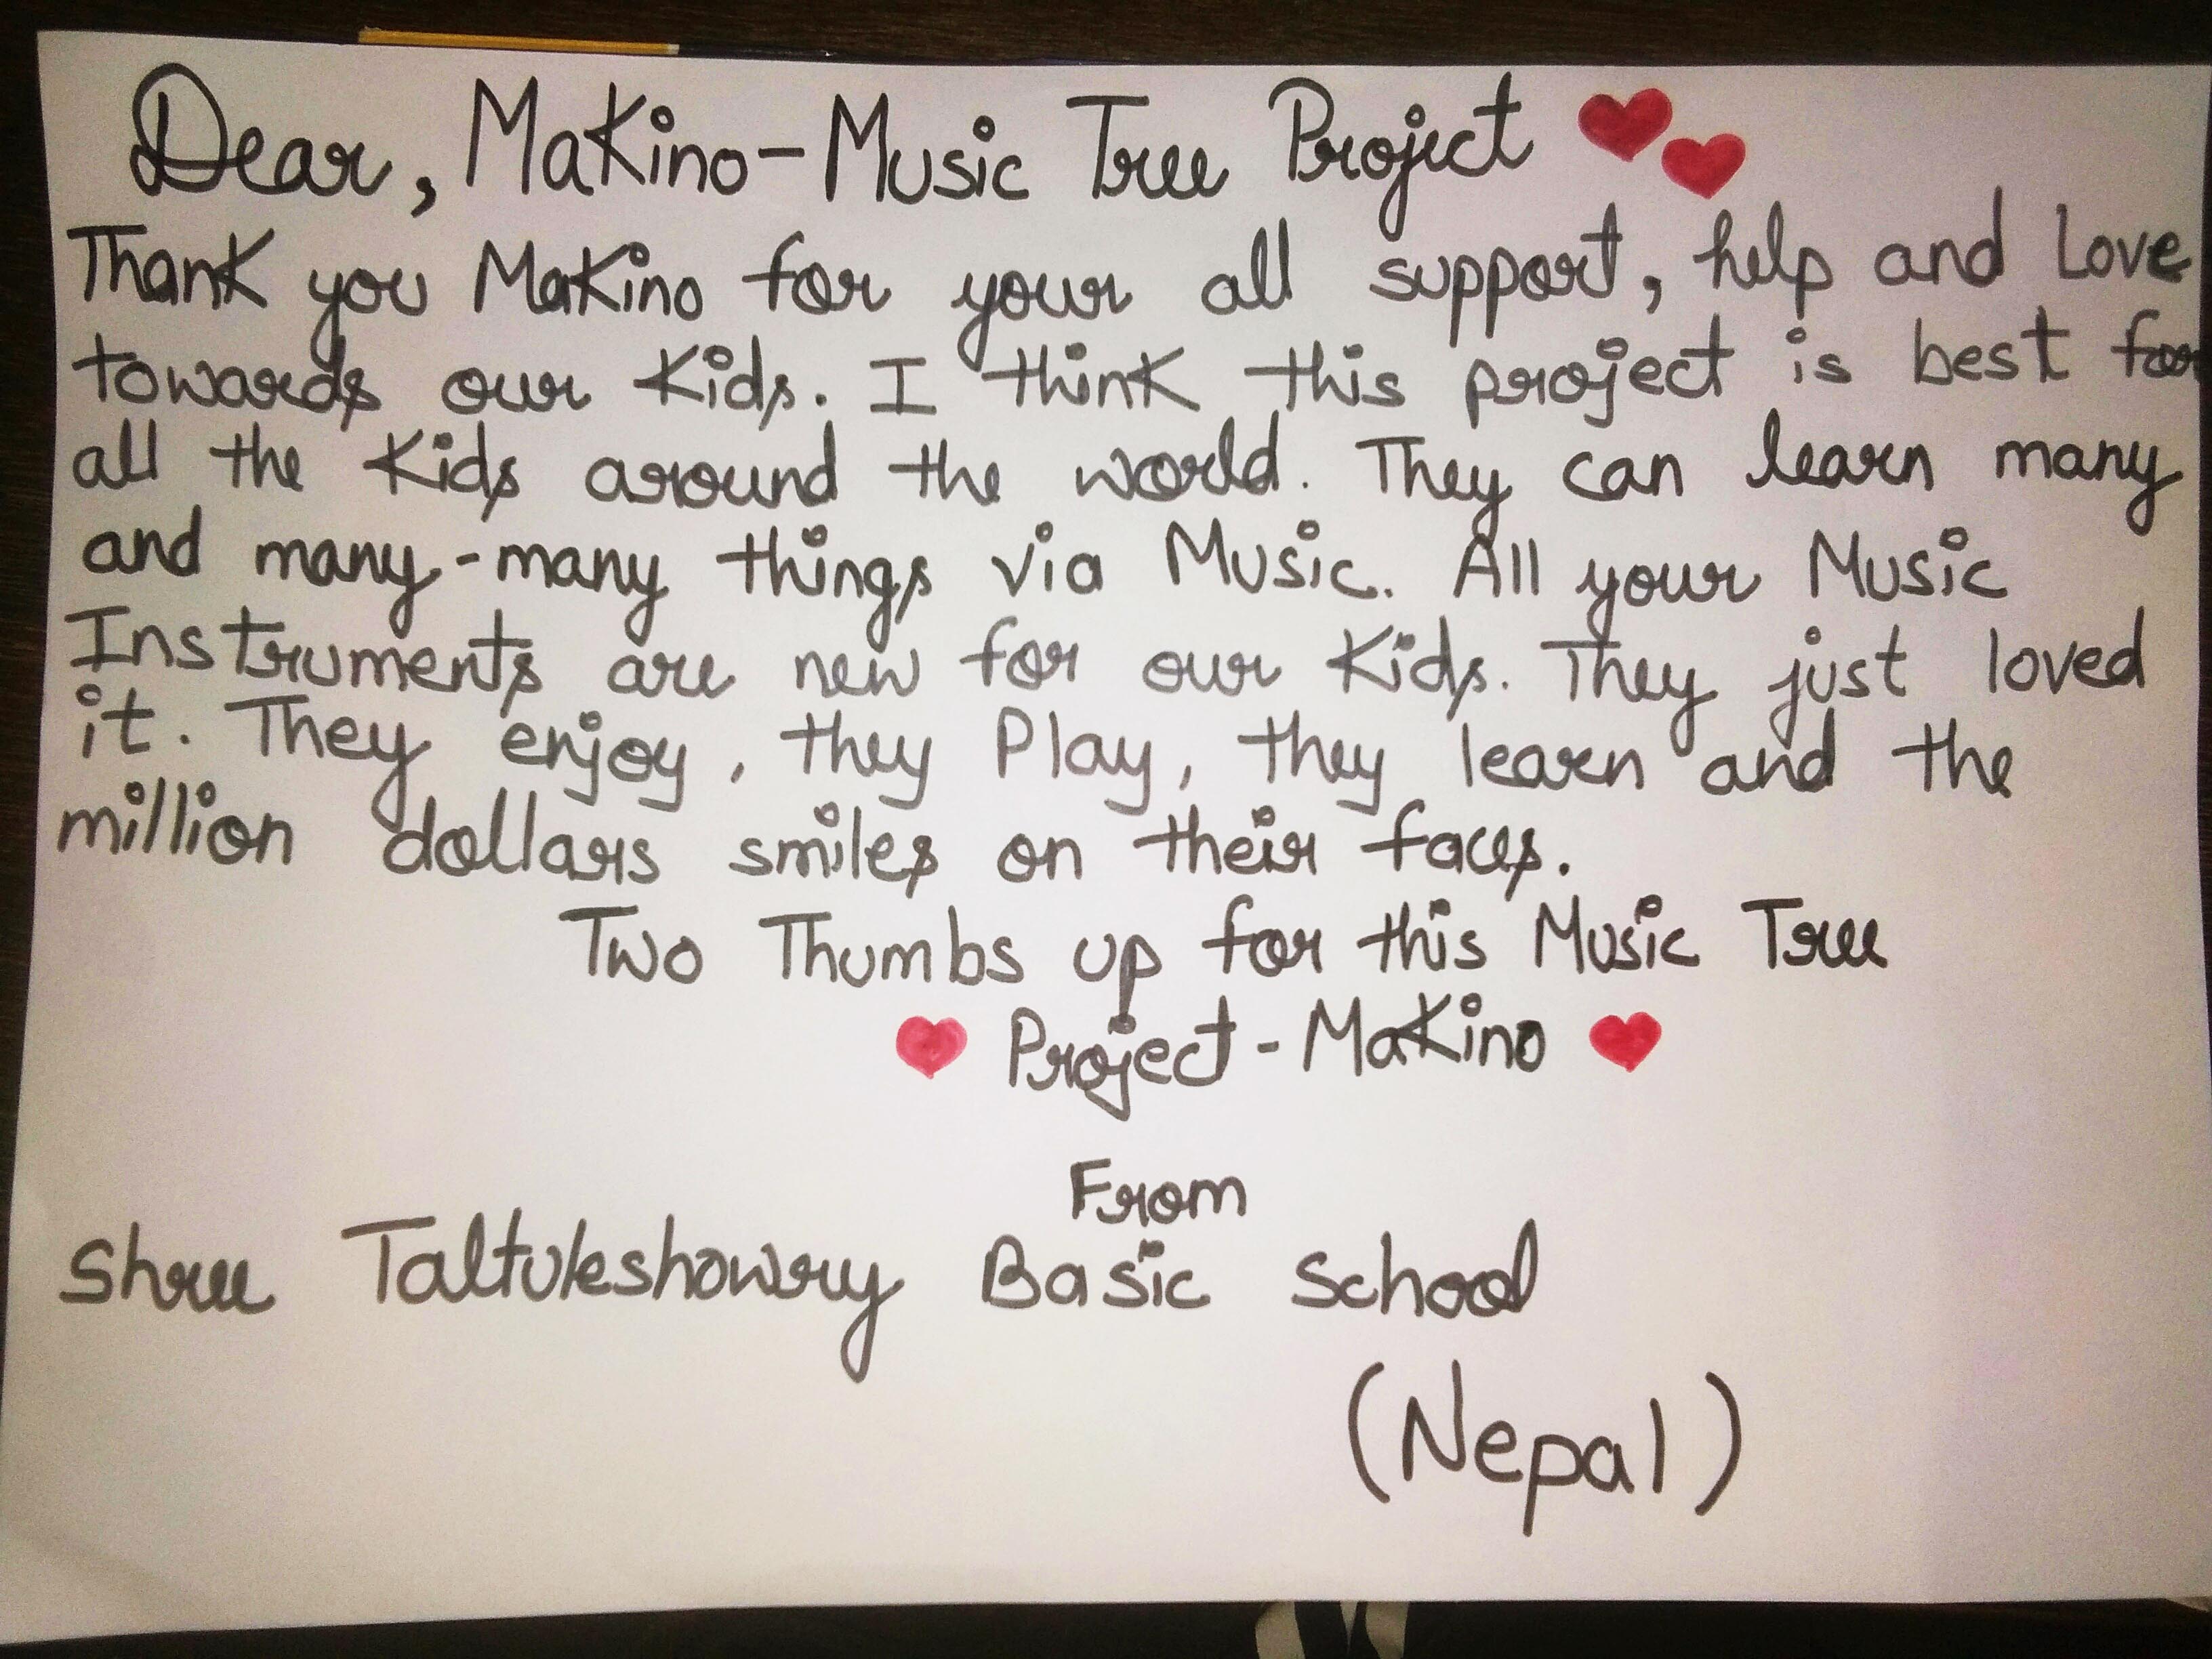 Dear, Makino-Music Tree Project
Thank you Makino for your all support, help and Love
towards our Kids. I think this project is best for
all the Kids around the world. They can learn many
and many-many things via Music. All your Music
Instruments are new for our Kids. They just loved
it. They enjoy, they Play, they learn and the
million dollars smiles on their faces.
Two Thumbs up for this Music Tree
Project-Makino
From
Shree Taltuleshowry Basic School
(Nepal)